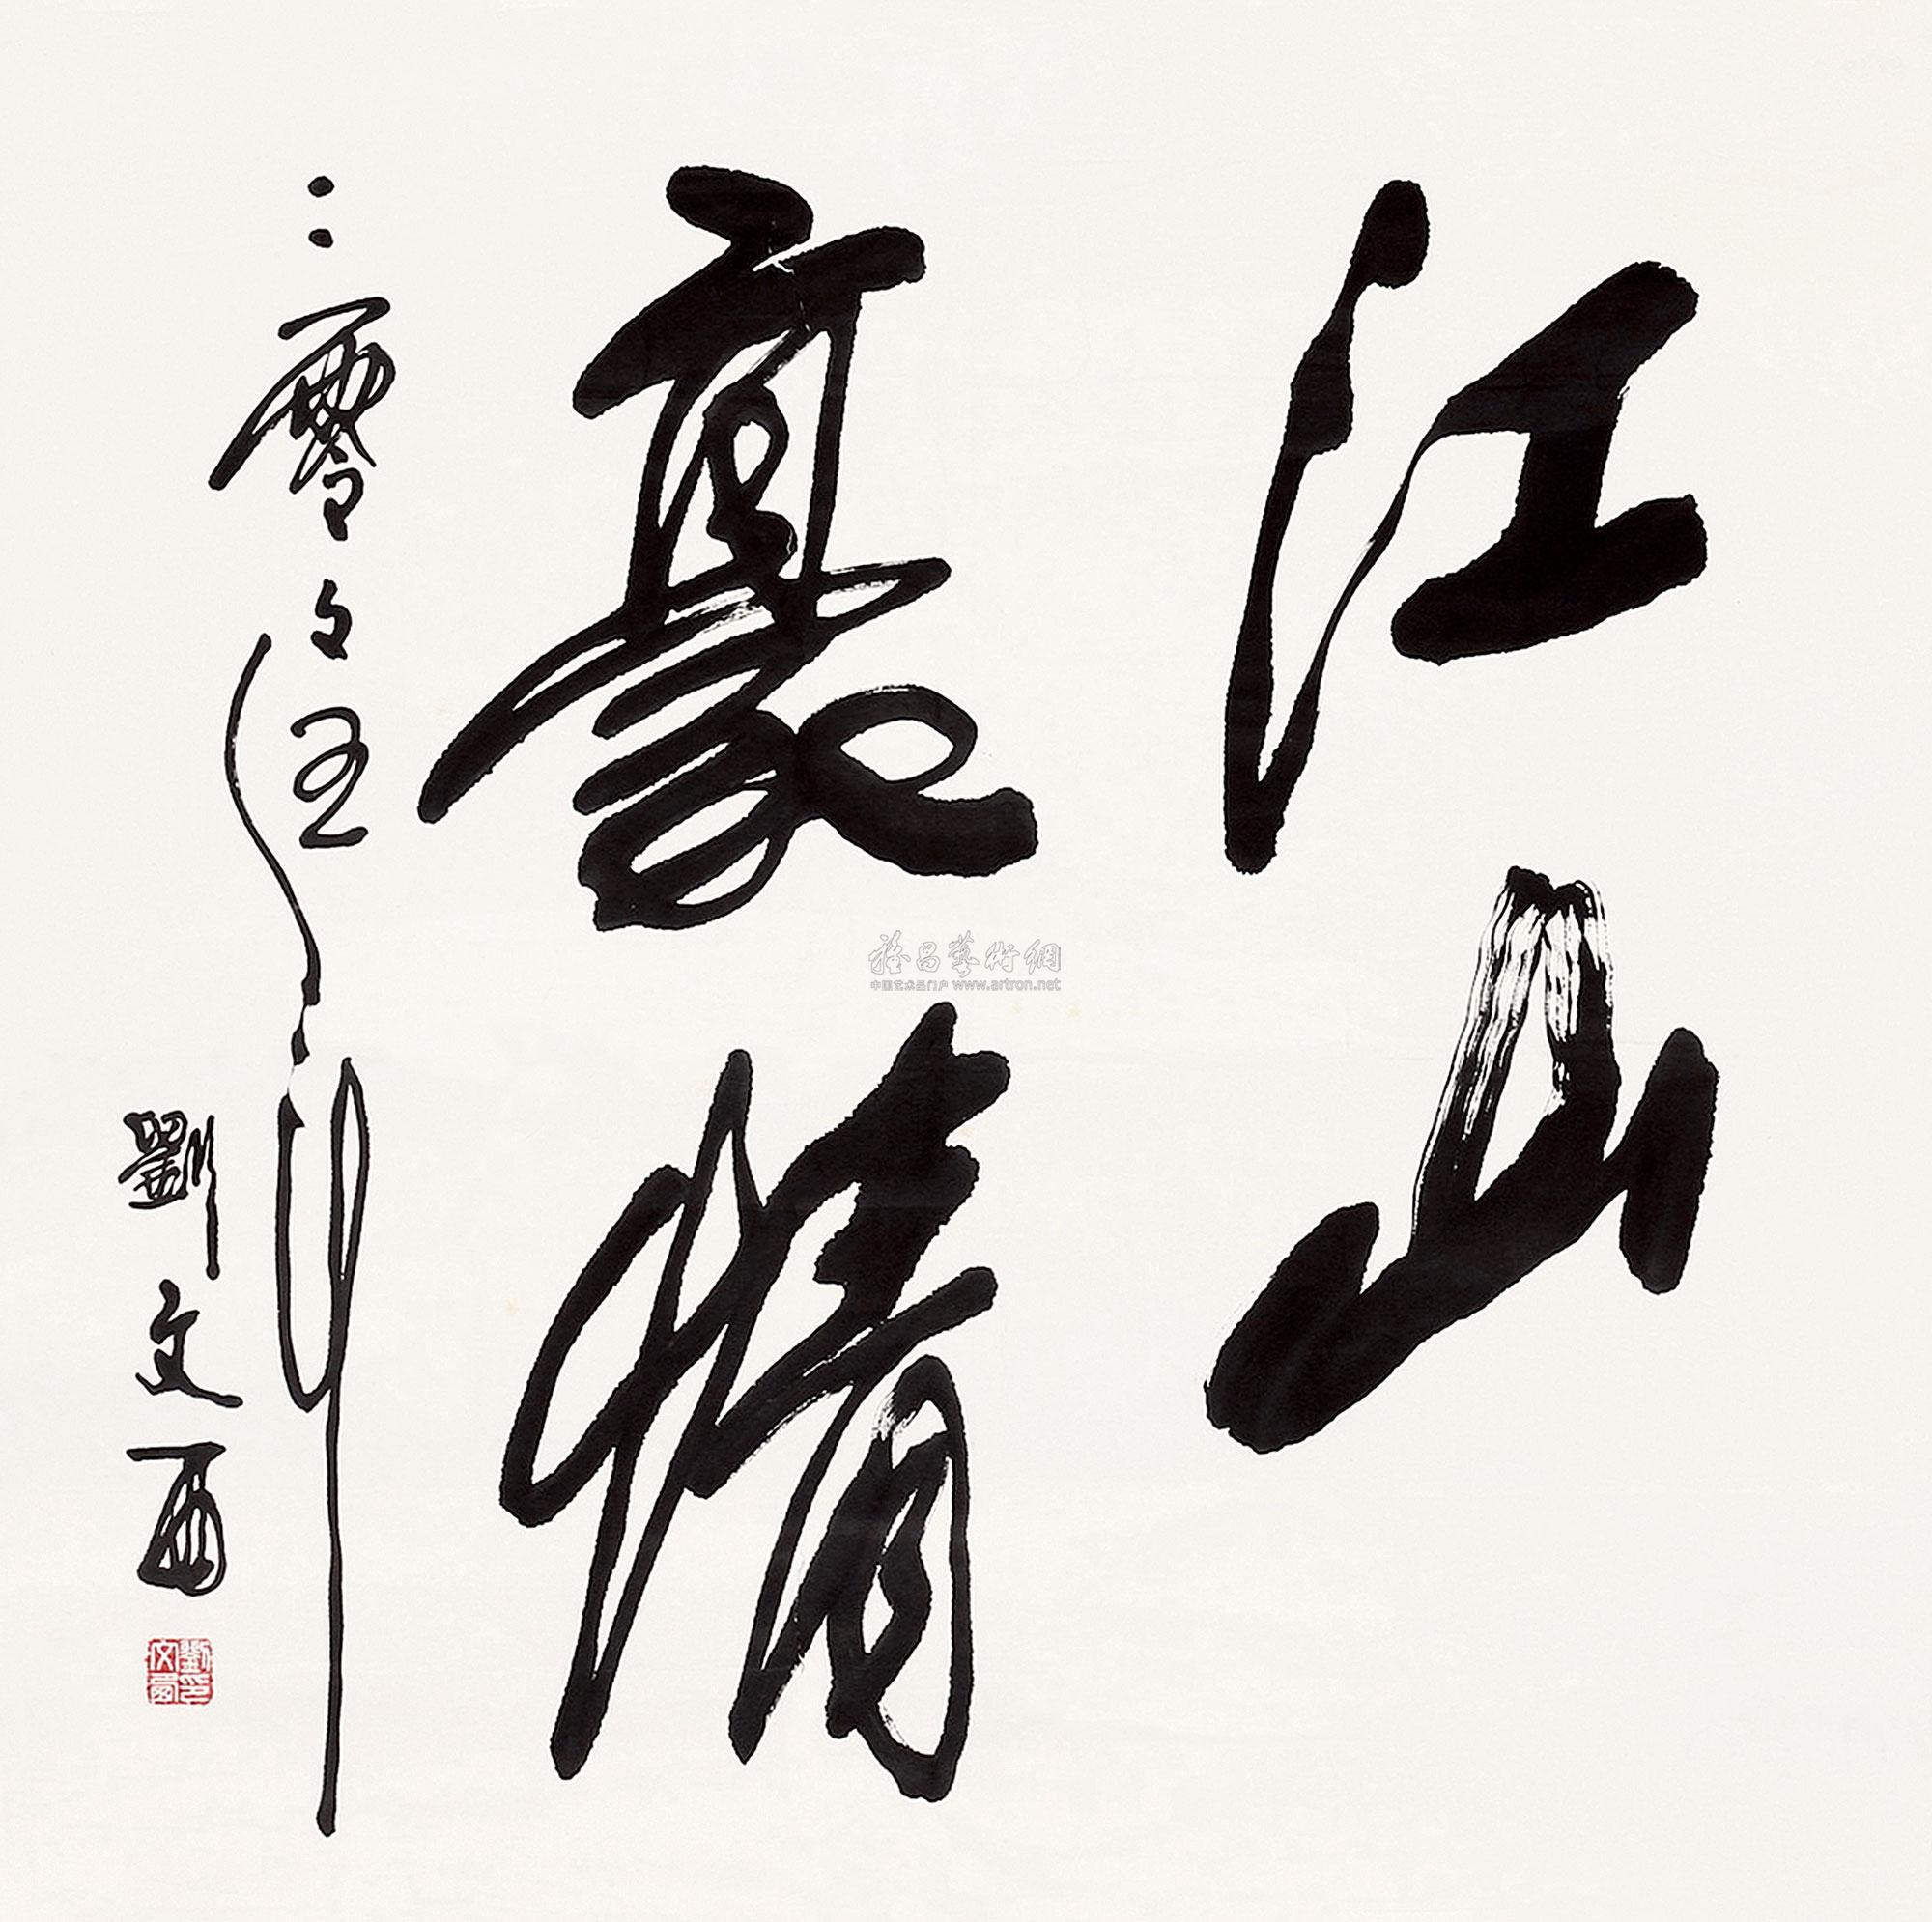 江山
豪情
二零零五年
劉文西
劉文西印
雅昌藝術網
中国艺术品门户 www.artron.net